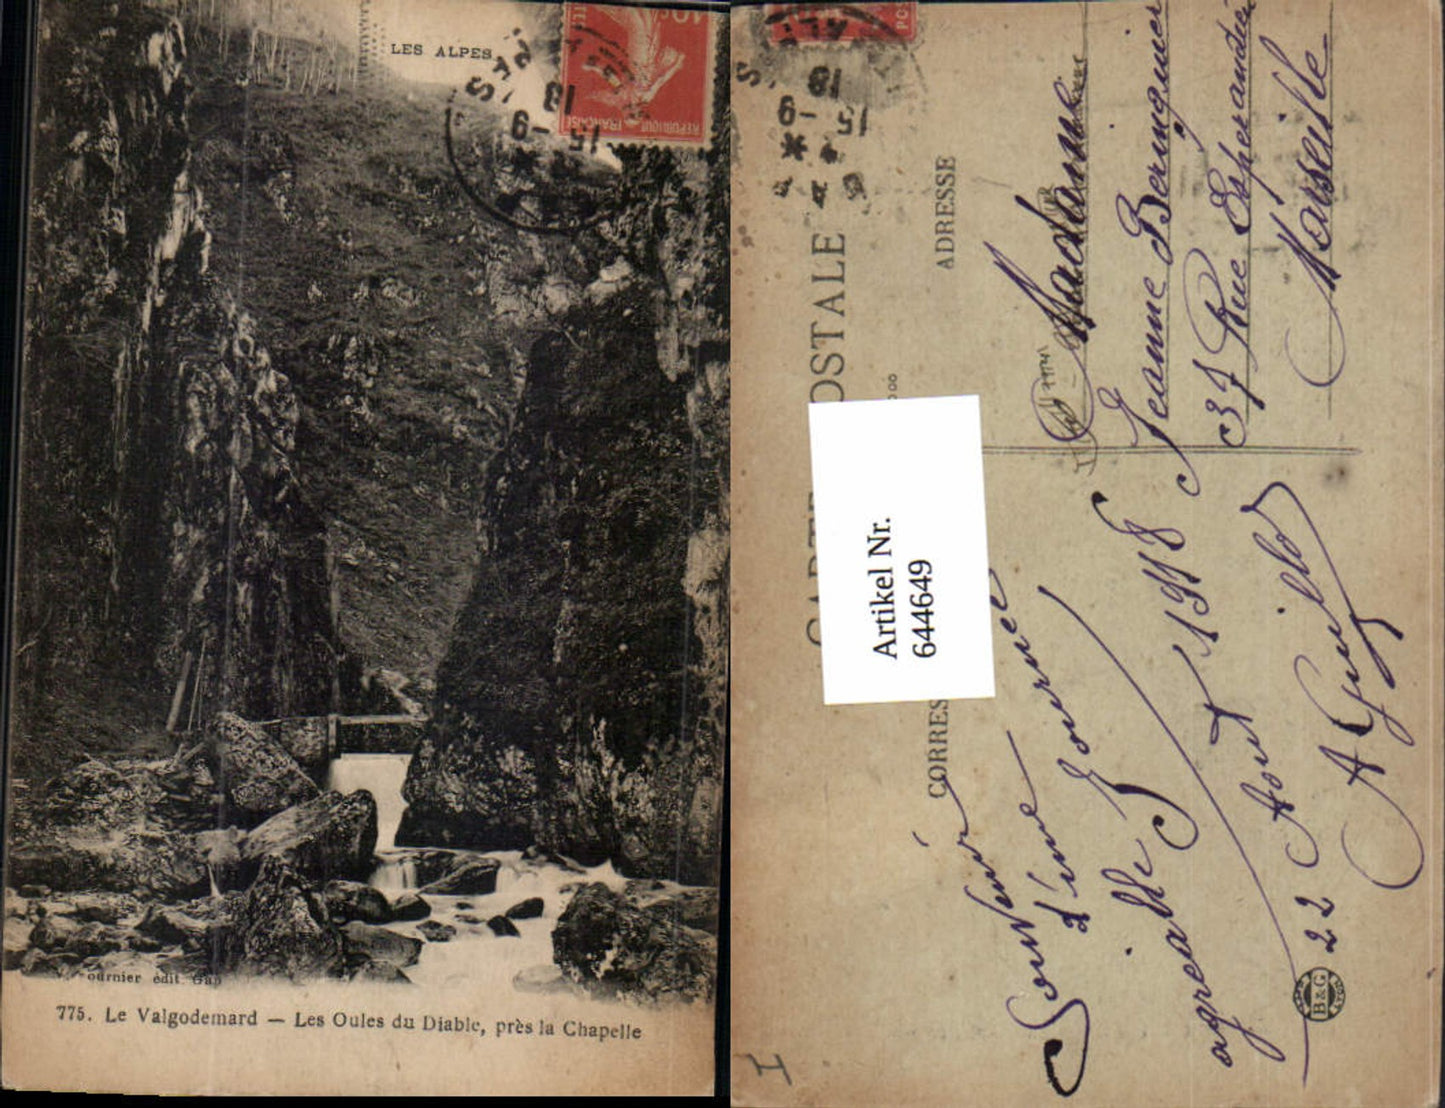 LES ALPES
10c
REPUBLIQUE FRANÇAISE
15 -9
18
V. Fournier édit. Gap
775. Le Valgodemard — Les Oules du Diable, près la Chapelle
CARTE POSTALE
CORRES
ADRESSE
Artikel Nr.
644649
Souvenir
d'une Journée
agréable
22 Aout 1918
Madame
Jeanne
37 Rue Esperandieu
Marseille
B&G
15 -9
18